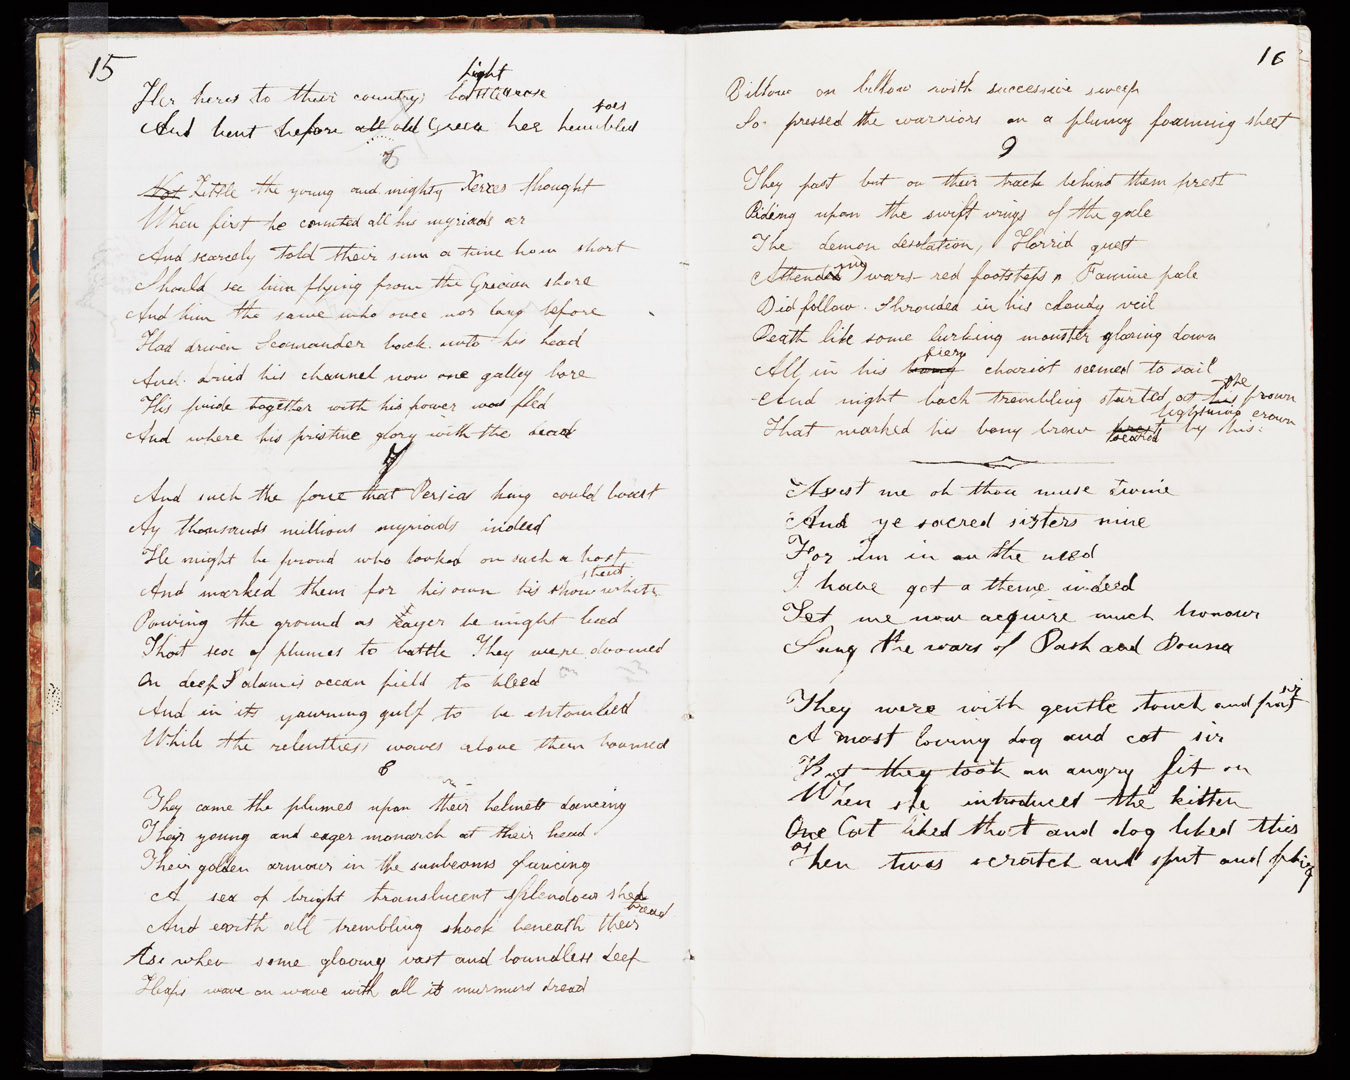 15
Her heros to their countrys battle rose
fight
And bent before all old Greece her humbled
foes
6
Not Little the young and mighty Xerxes thought
When first he counted all his myriads oer
And scarcely told their sum a time how short
Should see him flying from the Grecian shore
And him the same who once nor long before
Had driven Scamander back unto his head
And dried his channel now one galley bore
His pride together with his power was fled
And where his pristine glory with the dead
7
And such the force that Persias king could boast
Ay thousands millions myriads indeed
He might be proud who looked on such a host
And marked them for his own his show while
shout
Pawing the ground as eager he might lead
That sea of plumes to battle They were doomed
On deep Salamis ocean field to bleed
And in its yawning gulf to be entombed
While the relentless waves above them boomed
8
They came the plumes upon their helmets dancing
Their young and eager monarch at their head
Their golden armour in the sunbeams glancing
A sea of bright translucent splendour shed
And earth all trembling shook beneath their
tread
As when some glooming vast and boundless deep
Heaps wave on wave with all its murmurs dread
16
Billow on billow with successive sweep
So pressed the warriors on a plumy foaming sheet
9
They past but on their track behind them prest
Riding upon the swift wings of the gale
The demon desolation, Horrid guest
Attending wars red footsteps, Famine pale
Did follow. Shrouded in his cloudy veil
Death like some lurking monster glaring down
All in his bony chariot seemed to sail
fiery
And night back trembling started at his frown
the
That marked his bony brow by his
seared lightning crown
Assist me oh thou muse divine
And ye sacred sisters nine
For Im in an the need
I have got a theme indeed
Let me now acquire much honour
Sung the wars of Pash and Donna
They were with gentle touch and pat
sir
A most loving dog and cat sir
But they took an angry fit on
When she introduced the kitten
One Cat liked that and dog liked this
Then twas scratch and spit and